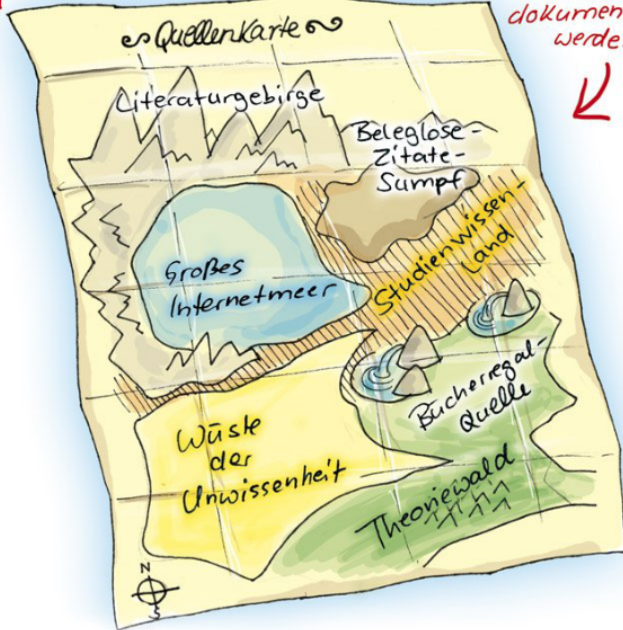 dokumen
werde
Quellenkarte
Literaturgebirge
Beleglose-
Zitate-
Sumpf
Großes
Internetmeer
Studienwissen-
Land
Bücherregal-
Quelle
Wüste
der
Unwissenheit
Theoriewald
N
S